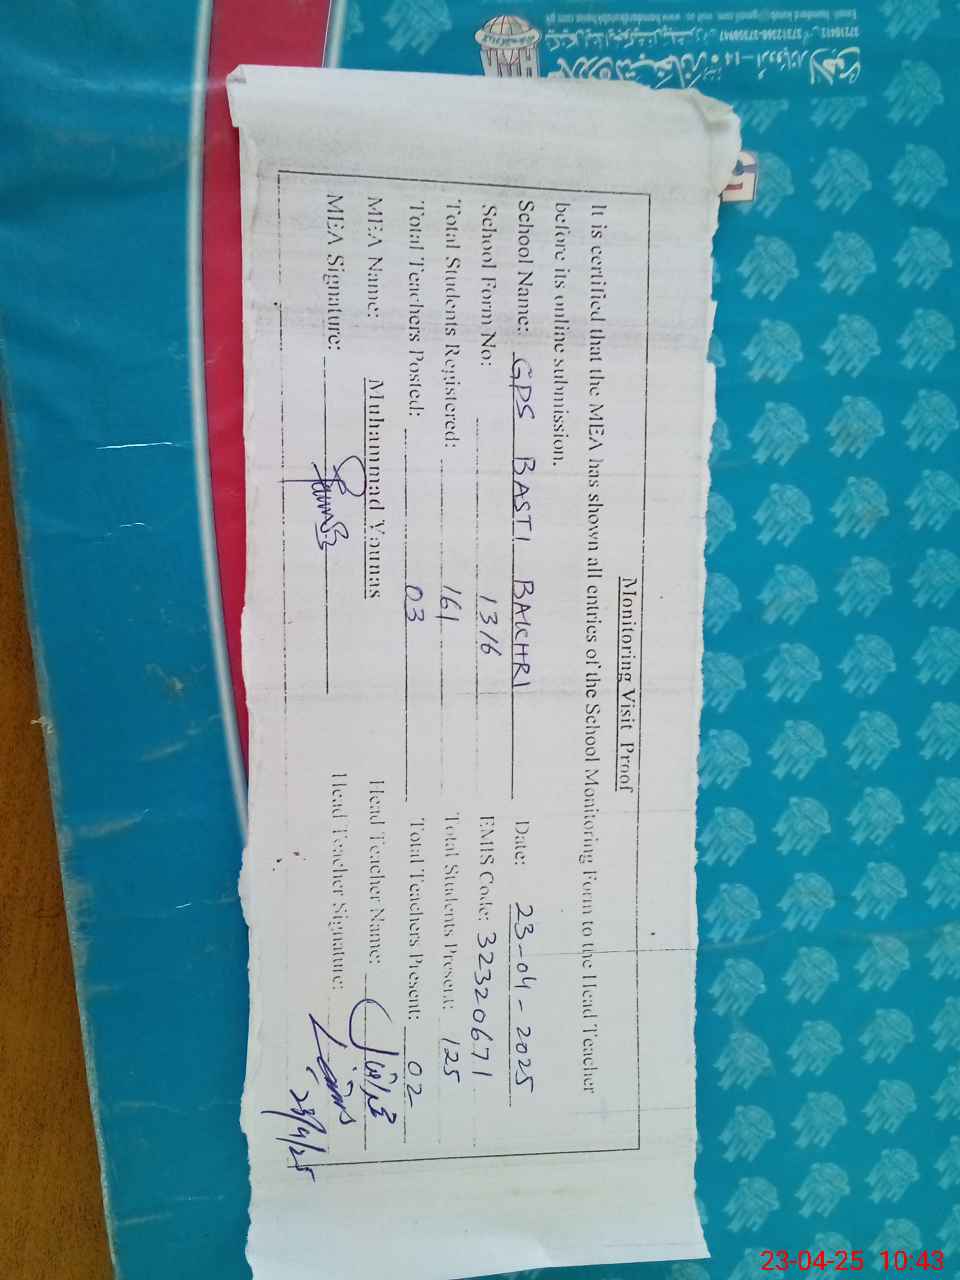 Monitoring Visit Proof
It is certified that the MEA has shown all entries of the School Monitoring Form to the Head Teacher
before its online submission.
School Name: GPS BASTI BAKHRI Date: 23-04-2025
School Form No: 1316 EMIS Code: 32320671
Total Students Registered: 161 Total Students Present: 125
Total Teachers Posted: 03 Total Teachers Present: 02
MEA Name: Muhammad Younas Head Teacher Name:
MEA Signature: Head Teacher Signature:
23/4/25
23-04-25 10:43